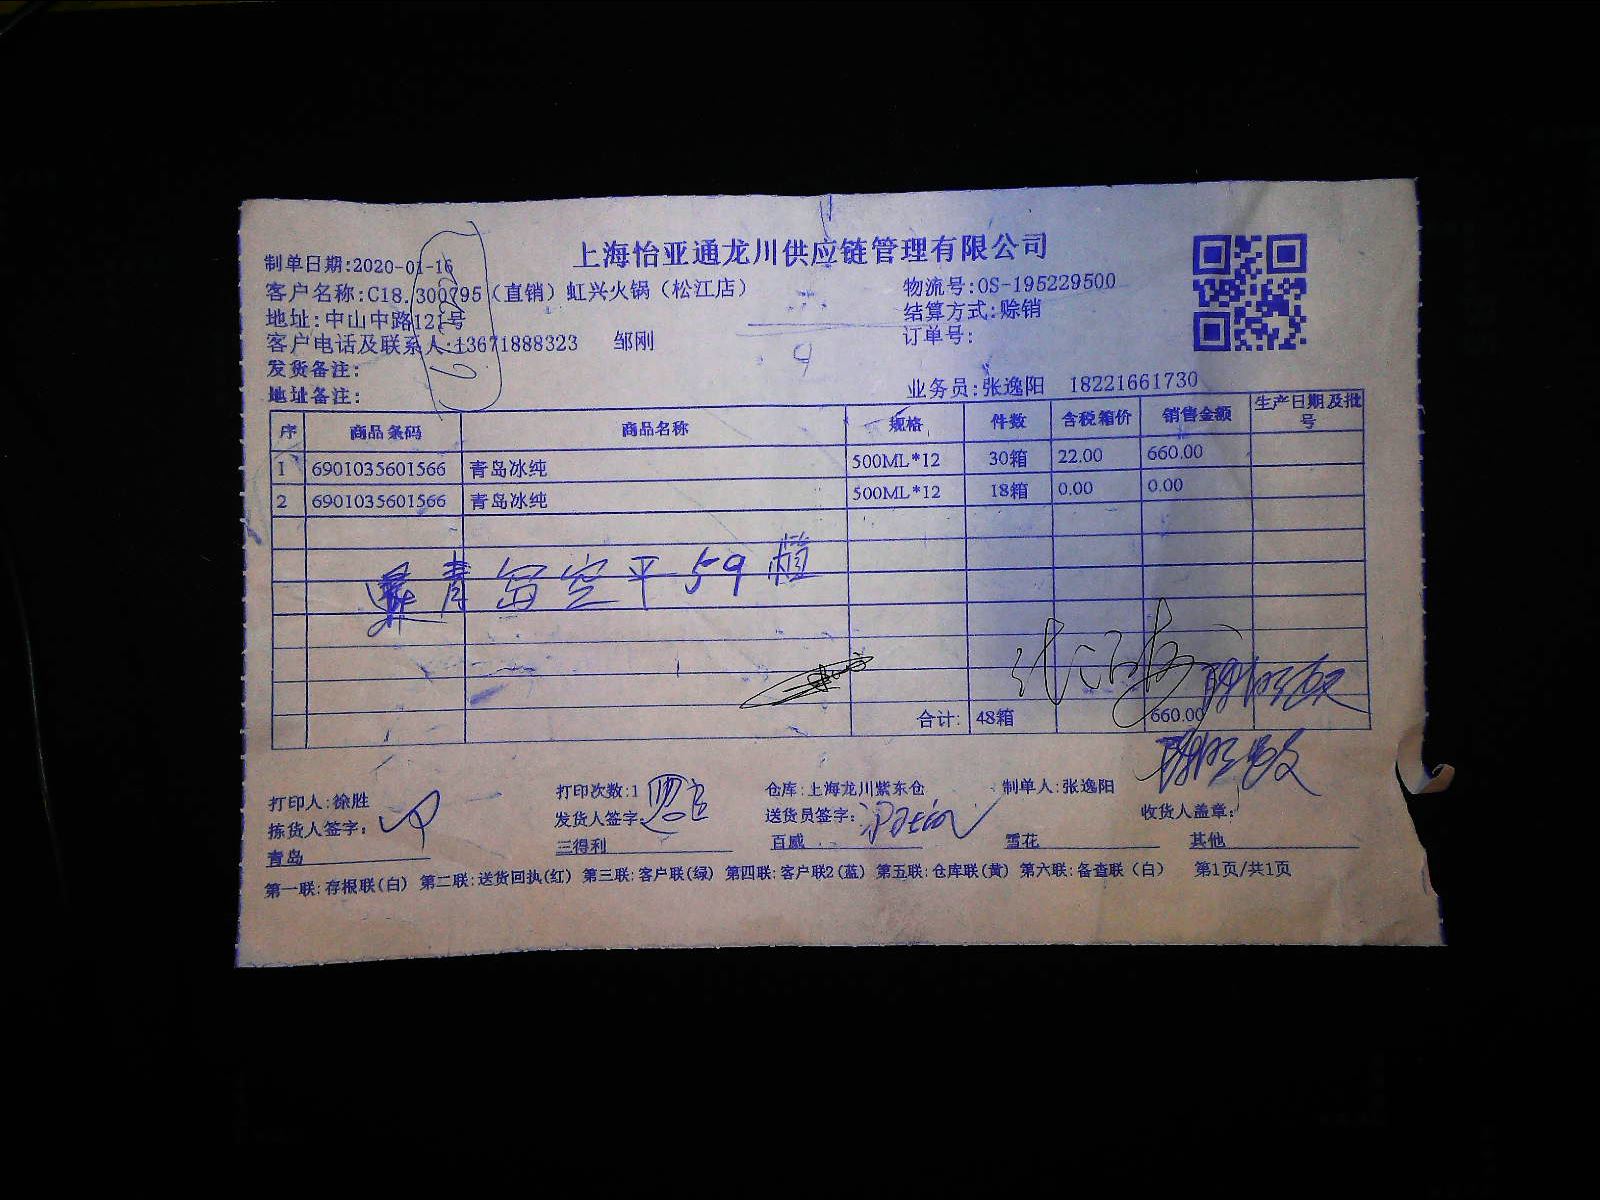 上海怡亚通龙川供应链管理有限公司
制单日期:2020-01-16
客户名称:C18.300795（直销）虹兴火锅（松江店） 物流号:OS-195229500
地址:中山中路121号 结算方式:赊销
客户电话及联系人:13671888323 邹刚 订单号:
发货备注:
地址备注: 业务员:张逸阳 18221661730
序 商品条码 商品名称 规格 件数 含税箱价 销售金额 生产日期及批号
1 6901035601566 青岛冰纯 500ML*12 30箱 22.00 660.00
2 6901035601566 青岛冰纯 500ML*12 18箱 0.00 0.00
青 空平59
合计: 48箱 660.00
打印人:徐胜 打印次数:1 仓库:上海龙川紫东仓 制单人:张逸阳
拣货人签字: 发货人签字: 送货员签字: 收货人盖章:
青岛 三得利 百威 雪花 其他
第一联:存根联(白) 第二联:送货回执(红) 第三联:客户联(绿) 第四联:客户联2(蓝) 第五联:仓库联(黄) 第六联:备查联（白） 第1页/共1页